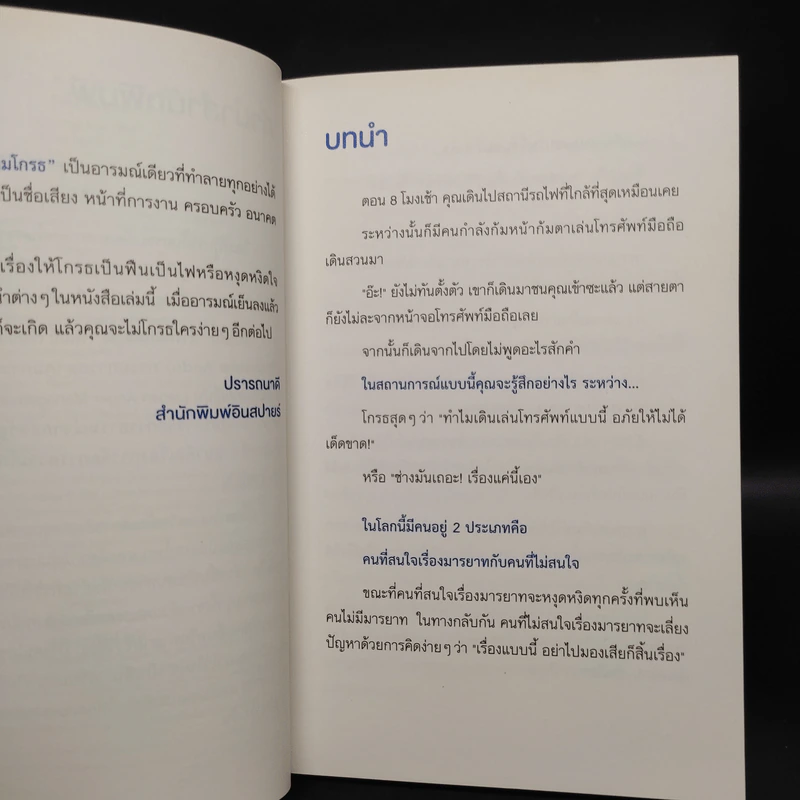 มโกรธ” เป็นอารมณ์เดียวที่ทำลายทุกอย่างได้
เป็นชื่อเสียง หน้าที่การงาน ครอบครัว อนาคต
เรื่องให้โกรธเป็นฟืนเป็นไฟหรือหงุดหงิดใจ
ำต่างๆในหนังสือเล่มนี้ เมื่ออารมณ์เย็นลงแล้ว
็จะเกิด แล้วคุณจะไม่โกรธใครง่ายๆอีกต่อไป
ปรารถนาดี
สำนักพิมพ์อินสปายร์
บทนำ
ตอน 8 โมงเช้า คุณเดินไปสถานีรถไฟที่ใกล้ที่สุดเหมือนเคย
ระหว่างนั้นก็มีคนกำลังก้มหน้าก้มตาเล่นโทรศัพท์มือถือ
เดินสวนมา
"อ๊ะ!" ยังไม่ทันตั้งตัว เขาก็เดินมาชนคุณเข้าซะแล้ว แต่สายตา
ก็ยังไม่ละจากหน้าจอโทรศัพท์มือถือเลย
จากนั้นก็เดินจากไปโดยไม่พูดอะไรสักคำ
ในสถานการณ์แบบนี้คุณจะรู้สึกอย่างไร ระหว่าง...
โกรธสุดๆว่า "ทำไมเดินเล่นโทรศัพท์แบบนี้ อภัยให้ไม่ได้
เด็ดขาด!"
หรือ "ช่างมันเถอะ! เรื่องแค่นี้เอง"
ในโลกนี้มีคนอยู่ 2 ประเภทคือ
คนที่สนใจเรื่องมารยาทกับคนที่ไม่สนใจ
ขณะที่คนที่สนใจเรื่องมารยาทจะหงุดหงิดทุกครั้งที่พบเห็น
คนไม่มีมารยาท ในทางกลับกัน คนที่ไม่สนใจเรื่องมารยาทจะเลี่ยง
ปัญหาด้วยการคิดง่ายๆว่า "เรื่องแบบนี้ อย่าไปมองเสียก็สิ้นเรื่อง"